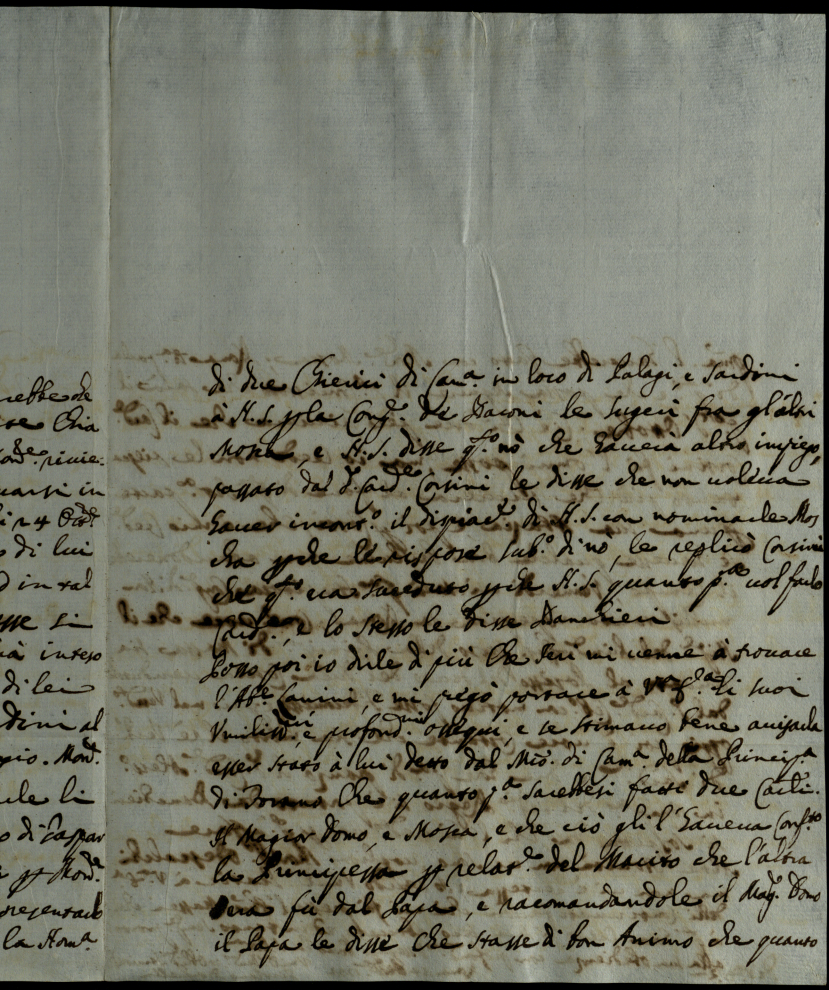 rebbe de
re Chia
Mons.re rivie:
uarsi in
di lui
d in val
sse si
rà inteso
di lei
dini al
pio. Mons.
ale li
o di Caspar
e p Mons.e
presentarlo
la Rom.a
di due Chierici di Cam.a in loco di Palagi, e Sardini
à N.S. p la Cong.e de Baroni le sugerì fra gl'altri
Mosca, e N.S. disse q.o nò che haveva altro impiego,
passato dal S. Card.e Corsini le disse che non voleva
haver incont.o il dispiac.e di N.S. con nominarle Mos
cha p che le rispose sub.o di nò, le replicò Corsini
che q.o era succeduto p che N.S. quanto p.a vol farlo
Card.e, e lo stesso le disse Banchieri
Posso poi io dirle di più che Ieri mi venne à trovare
l'Ab.e Camini, e mi pregò portare à V. li suoi
Umiliss.mi, e profond.mi ossequi, e se stimavo bene avisarla
esser stato à lui detto dal M.ro di Cam.a della Princip.a
di Forano che quanto p.a sarebbesi fatti due Card.li
Il Magior Domo, e Mosca, e che ciò gli l'haveva conf.to
la Principessa p relat.e del Marito che l'altra
sera fù dal Papa, e racomandandole il Mag. Domo
il Papa le disse che stasse di bon Animo che quanto